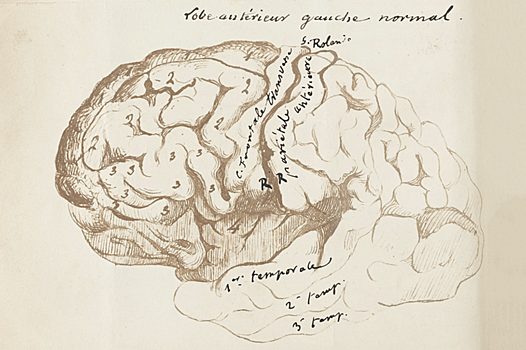 lobe antérieur gauche normal.
S. Rolando
C. frontale transverse
pariétale antérieure
R
2
2
2
2
2
3
3
3
3
3
3
3
4
1re temporale
2e temp.
3e temp.